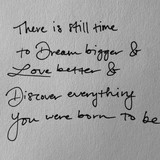 There is still time
to Dream bigger &
Love better &
Discover everything
You were born to be